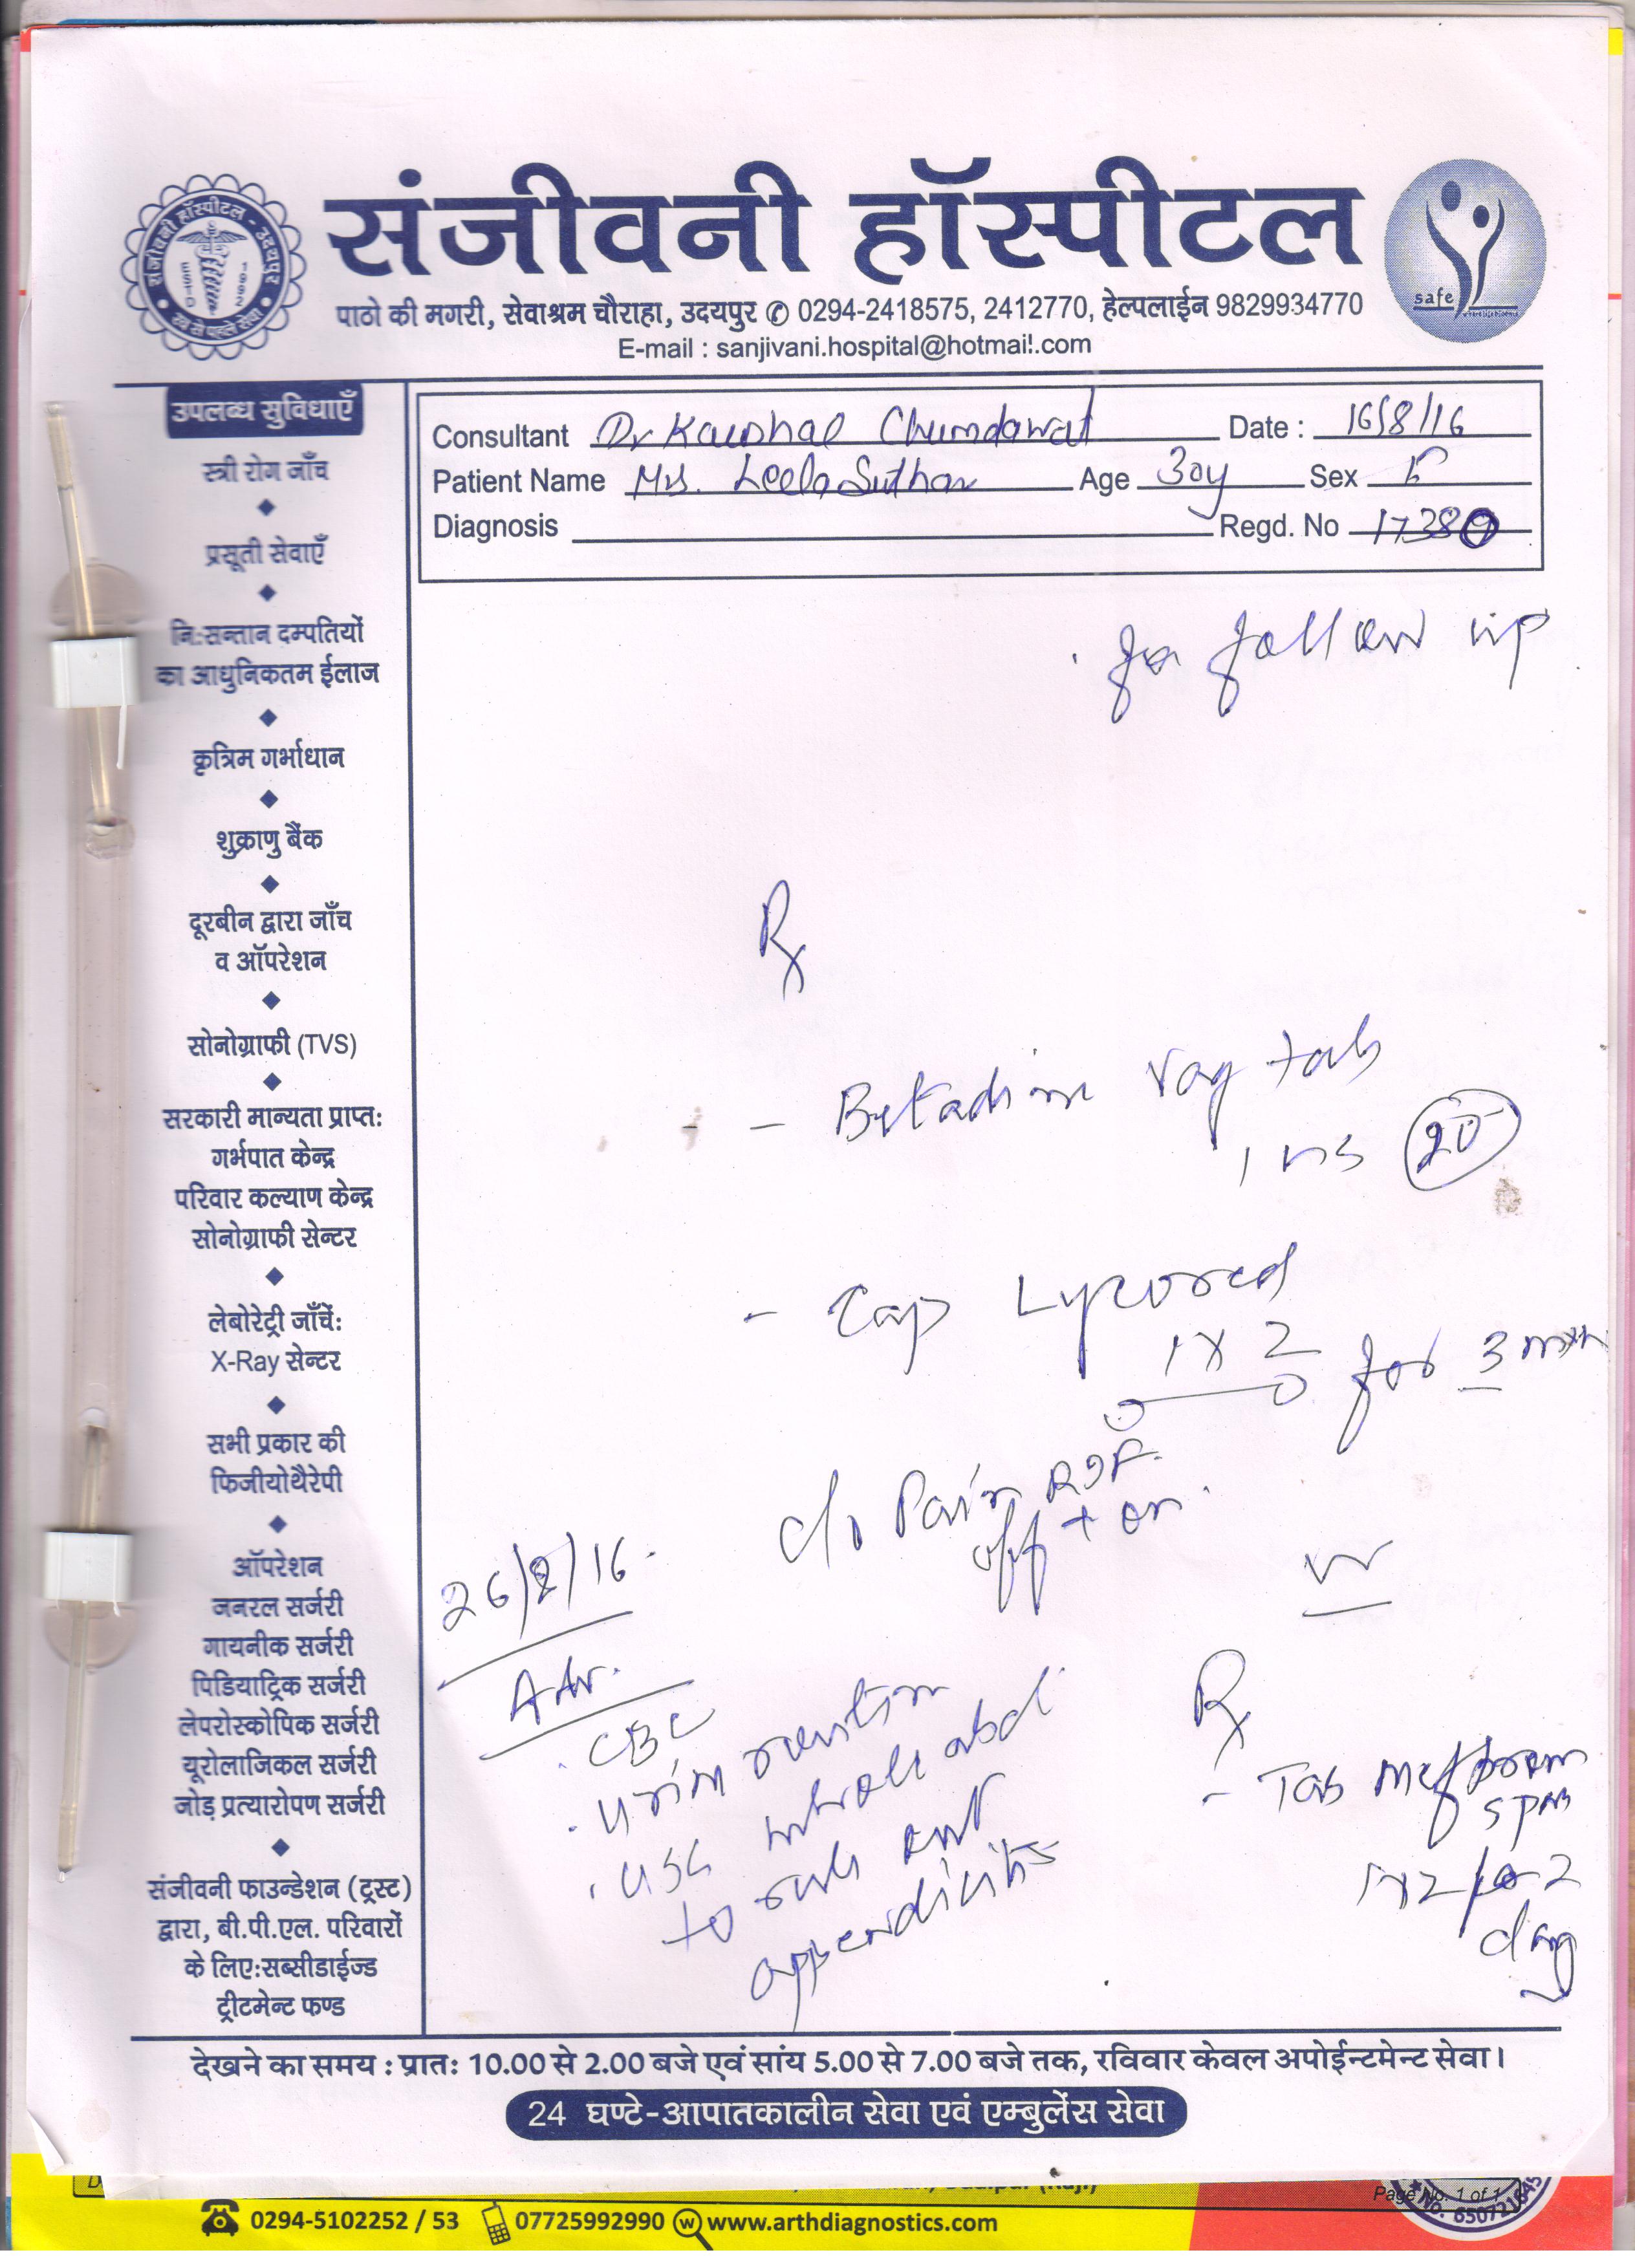 संजीवनी हॉस्पीटल - उदयपुर
ESTD 1992
संजीवनी हॉस्पीटल
safe
पाठो की मगरी, सेवाश्रम चौराहा, उदयपुर ✆ 0294-2418575, 2412770, हेल्पलाईन 9829934770
E-mail : sanjivani.hospital@hotmail.com
Consultant Dr Kaushal Chundawat Date : 16/8/16
Patient Name Mrs. Leela Suthar Age 30y Sex F
Diagnosis Regd. No 17380
उपलब्ध सुविधाएँ
स्त्री रोग जाँच
प्रसूती सेवाएँ
नि:सन्तान दम्पतियों
का आधुनिकतम ईलाज
कृत्रिम गर्भाधान
शुक्राणु बैंक
दूरबीन द्वारा जाँच
व ऑपरेशन
सोनोग्राफी (TVS)
सरकारी मान्यता प्राप्त:
गर्भपात केन्द्र
परिवार कल्याण केन्द्र
सोनोग्राफी सेन्टर
लेबोरेट्री जाँचें:
X-Ray सेन्टर
सभी प्रकार की
फिजीयोथैरेपी
ऑपरेशन
जनरल सर्जरी
गायनीक सर्जरी
पिडियाट्रिक सर्जरी
लेपरोस्कोपिक सर्जरी
यूरोलाजिकल सर्जरी
जोड़ प्रत्यारोपण सर्जरी
संजीवनी फाउन्डेशन (ट्रस्ट)
द्वारा, बी.पी.एल. परिवारों
के लिए:सब्सीडाईज्ड
ट्रीटमेन्ट फण्ड
for follow up
Rx
- Betadine vag tab
1 HS 20
- Cap Lycored
1 x 2 for 3 mon
26/8/16
c/o Pain RIF
off + on
Adv.
. CBC
. urine routine
. USG whole abd
to rule out
appendicitis
Rx
- Tab Meftal
spas
1x2 for 2
day
देखने का समय : प्रात: 10.00 से 2.00 बजे एवं सांय 5.00 से 7.00 बजे तक, रविवार केवल अपोईन्टमेन्ट सेवा।
24 घण्टे-आपातकालीन सेवा एवं एम्बुलेंस सेवा
Page No. 1 of 1
0294-5102252 / 53 07725992990 www.arthdiagnostics.com